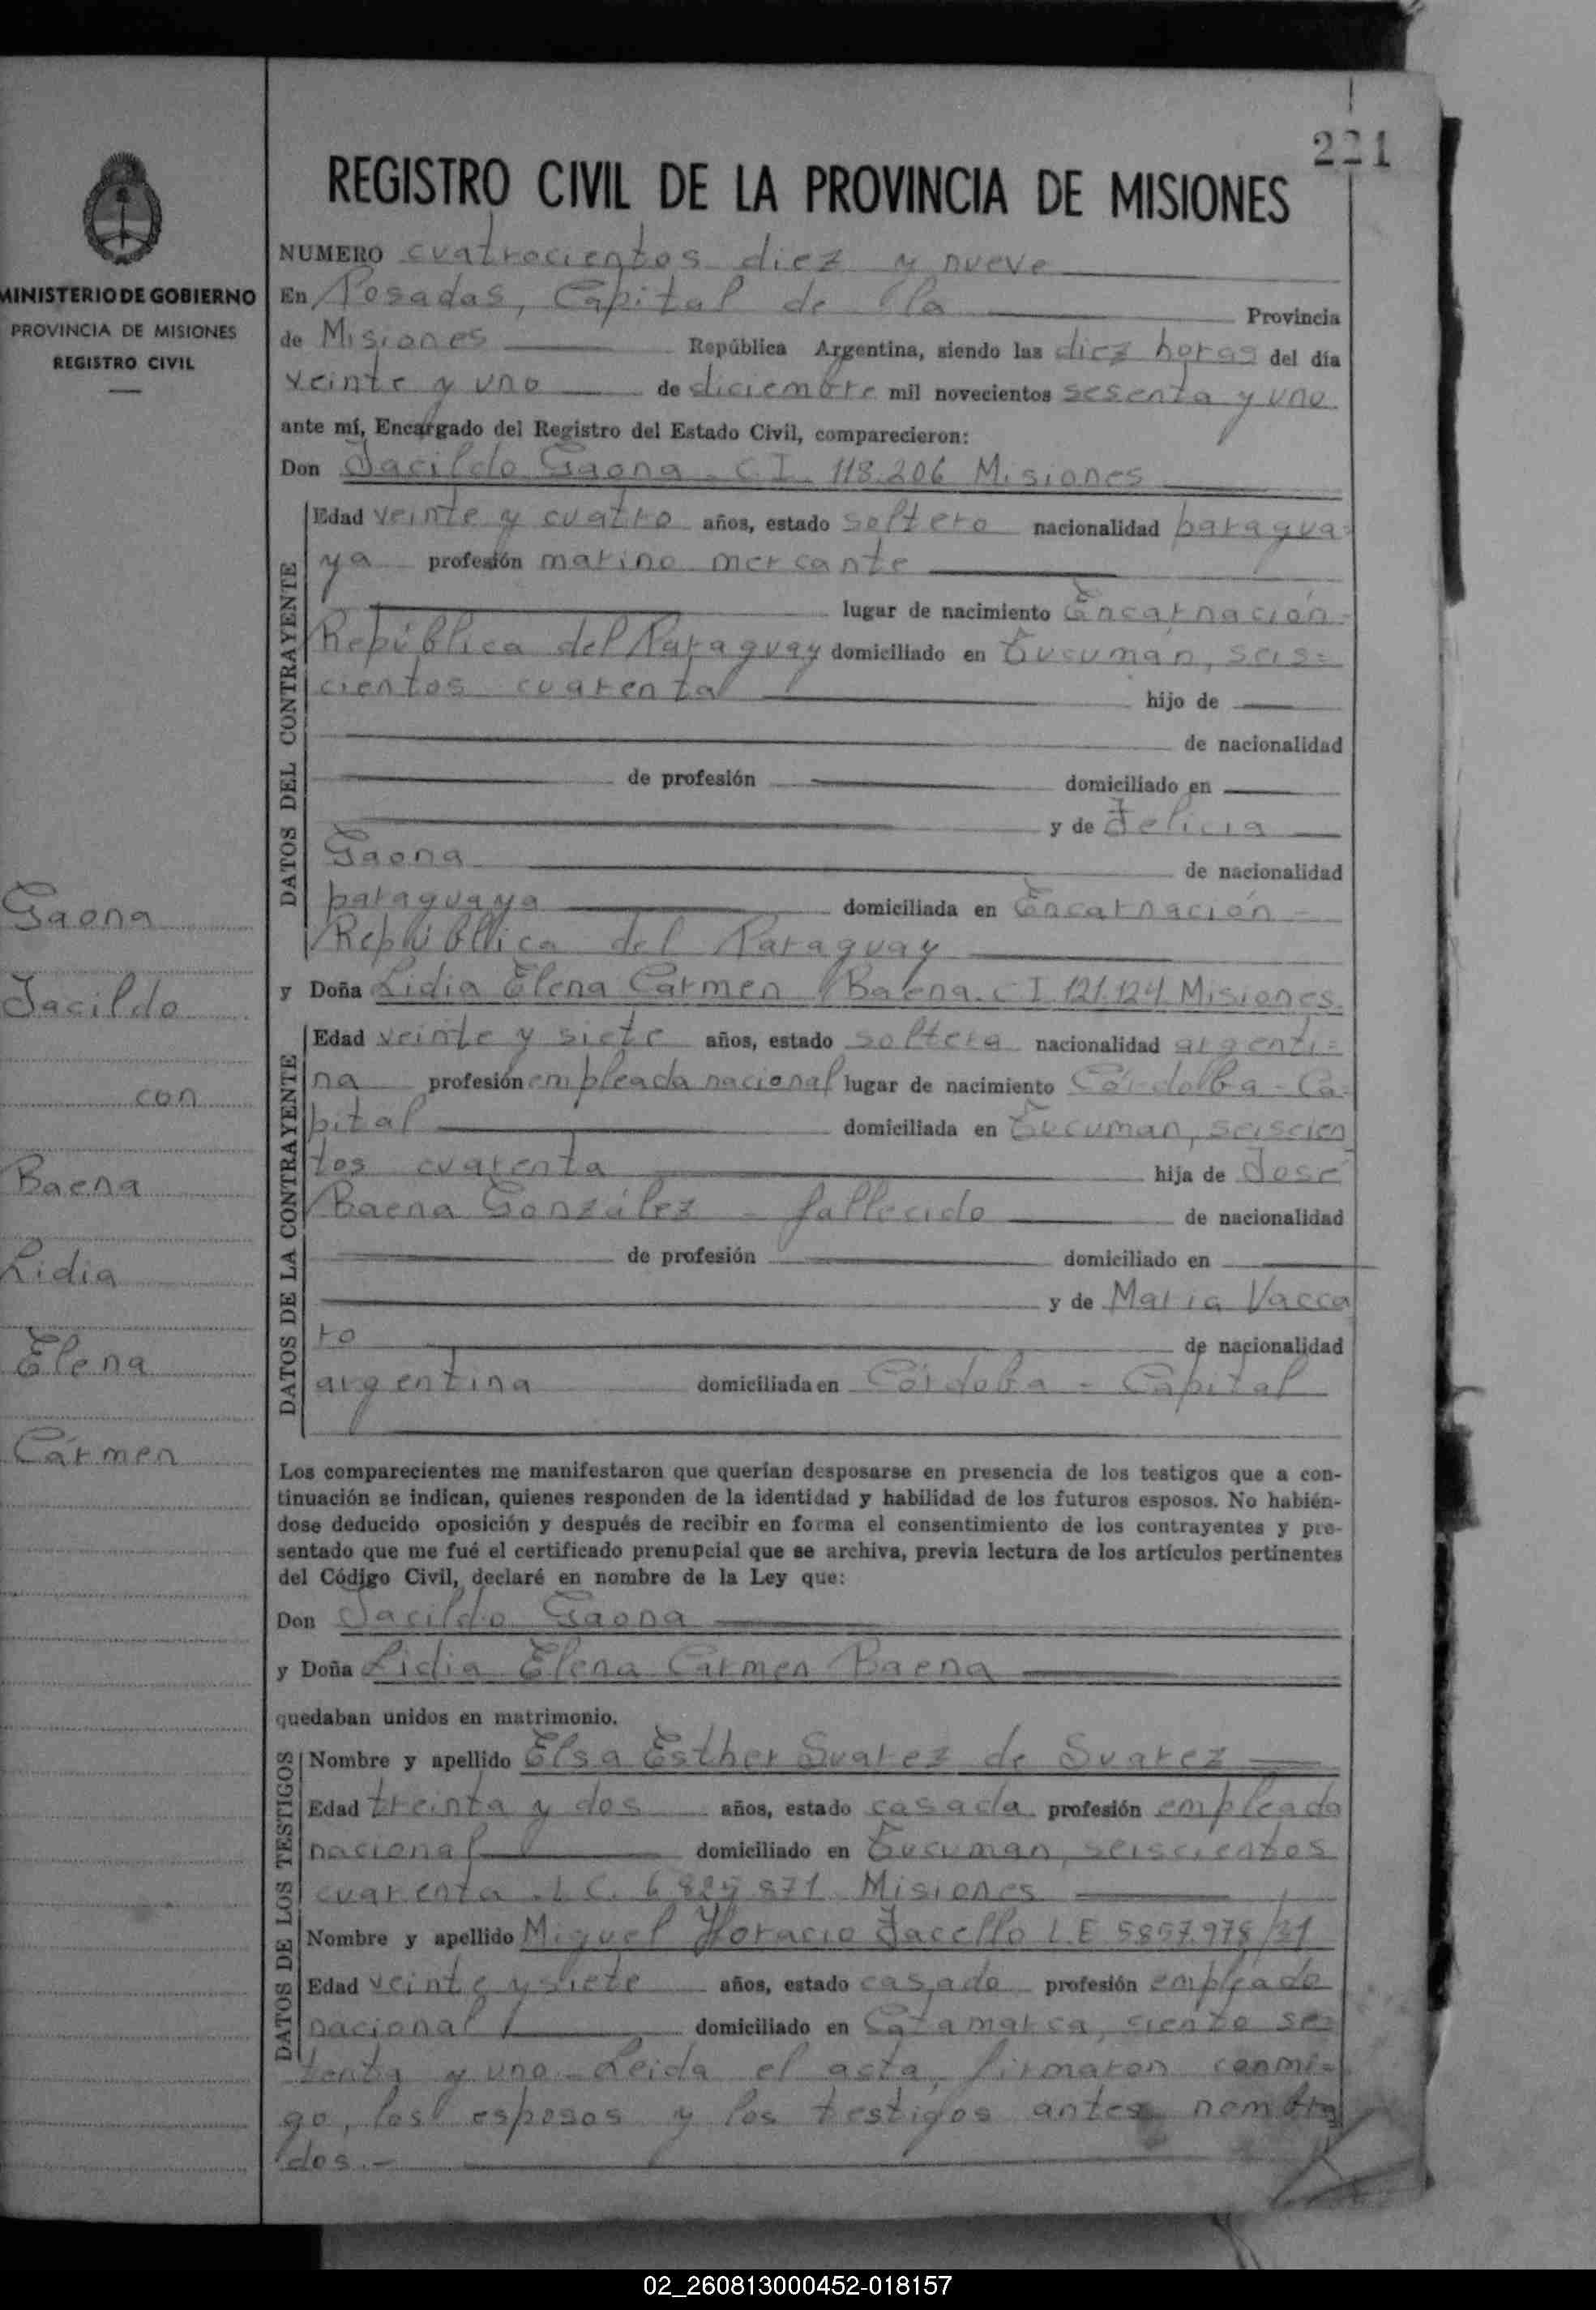 221
REGISTRO CIVIL DE LA PROVINCIA DE MISIONES
MINISTERIO DE GOBIERNO
PROVINCIA DE MISIONES
REGISTRO CIVIL
Gaona
Jacildo
con
Baena
Lidia
Elena
Carmen
NUMERO cuatrocientos diez y nueve
En Posadas, Capital de la Provincia
de Misiones República Argentina, siendo las diez horas del día
veinte y uno de diciembre mil novecientos sesenta y uno
ante mí, Encargado del Registro del Estado Civil, comparecieron:
Don Jacildo Gaona - C.I. 118.206 Misiones
DATOS DEL CONTRAYENTE
Edad veinte y cuatro años, estado soltero nacionalidad paragua=
ya profesión marino mercante
lugar de nacimiento Encarnación-
República del Paraguay domiciliado en Tucumán, seis=
cientos cuarenta hijo de
de nacionalidad
de profesión domiciliado en
y de Felicia
Gaona de nacionalidad
paraguaya domiciliada en Encarnación -
República del Paraguay
y Doña Lidia Elena Carmen Baena. C I 121.124 Misiones.
DATOS DE LA CONTRAYENTE
Edad veinte y siete años, estado soltera nacionalidad argenti=
na profesión empleada nacional lugar de nacimiento Córdoba - Ca=
pital domiciliada en Tucuman, seiscien
tos cuarenta hija de José
Baena González - fallecido de nacionalidad
de profesión domiciliado en
y de Maria Vacca
ro de nacionalidad
argentina domiciliada en Córdoba - Capital
Los comparecientes me manifestaron que querían desposarse en presencia de los testigos que a con-
tinuación se indican, quienes responden de la identidad y habilidad de los futuros esposos. No habién-
dose deducido oposición y después de recibir en forma el consentimiento de los contrayentes y pre-
sentado que me fué el certificado prenupcial que se archiva, previa lectura de los artículos pertinentes
del Código Civil, declaré en nombre de la Ley que:
Don Jacildo Gaona
y Doña Lidia Elena Carmen Baena
quedaban unidos en matrimonio.
DATOS DE LOS TESTIGOS
Nombre y apellido Elsa Esther Suarez de Suarez
Edad treinta y dos años, estado casada profesión empleada
nacional domiciliado en Tucuman, seiscientos
cuarenta. L.C. 6.825.871 Misiones
Nombre y apellido Miguel Horacio Facello L.E 5.857.978/31
Edad veinte y siete años, estado casado profesión empleado
nacional domiciliado en Catamarca, ciento se=
tenta y uno. Leida el acta, firmaron conmi=
go, los esposos y los testigos antes nombra
dos.-
02_260813000452-018157